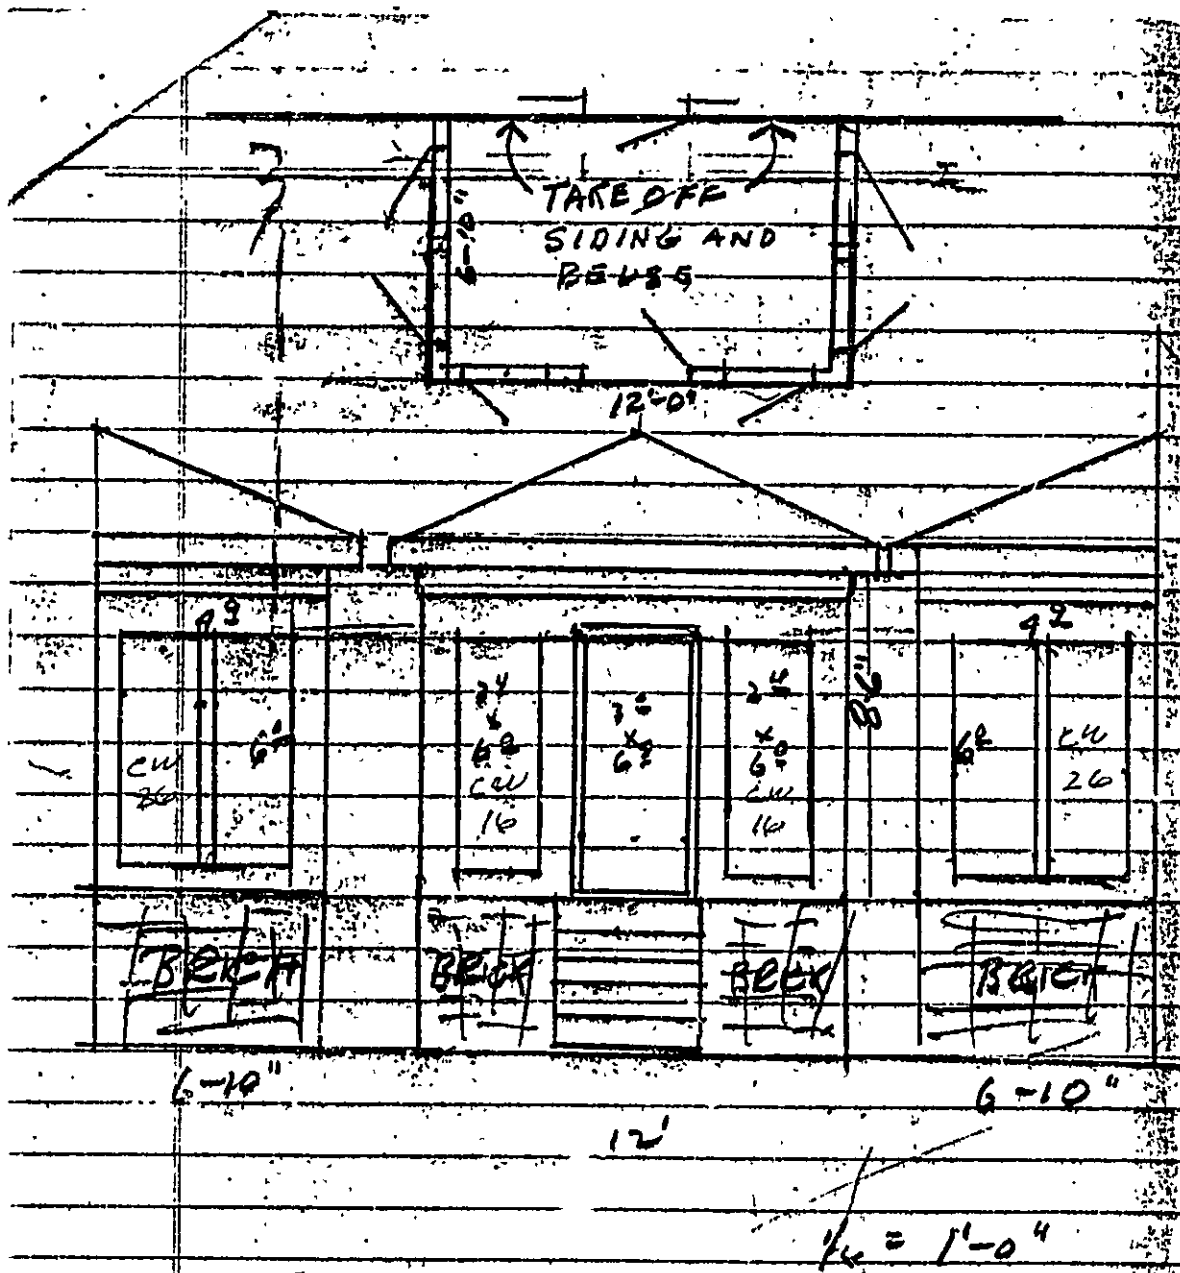 TAKE OFF
SIDING AND
REUSE
6-10"
12'-0"
4 9
6
CW
26
24
x
6 8
CW
16
3 0
x
6 8
2 4
x
6 8
CW
16
8'6"
4 9
6 8
CW
26
BRICK
BRICK
BRICK
BRICK
6-10"
6-10"
12'
1/4 = 1'-0"